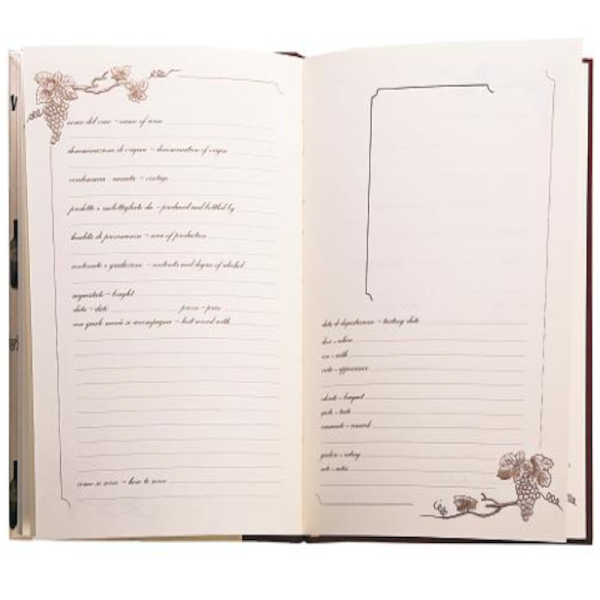 nome del vino - name of wine
denominazione di origine - denomination of origin
vendemmia annata - vintage
prodotto e imbottigliato da - produced and bottled by
località di provenienza - area of production
contenuto e gradazione - contents and degree of alcohol
acquistato - bought
data - date
con quale menù si accompagna - best served with
come si serve - how to serve
data di degustazione - tasting date
dove - where
con - with
vista - appearance
olfatto - bouquet
gusto - taste
giudizio - rating
note - notes